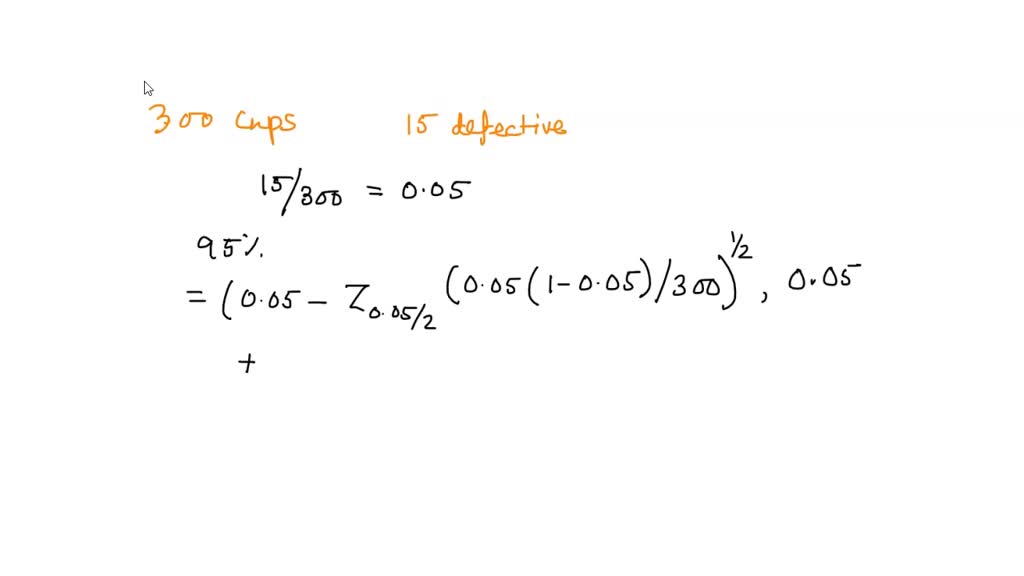 300 cups 15 defective
15/300 = 0.05
95%.
= (0.05 - Z0.05/2 (0.05(1-0.05)/300)^1/2, 0.05
+